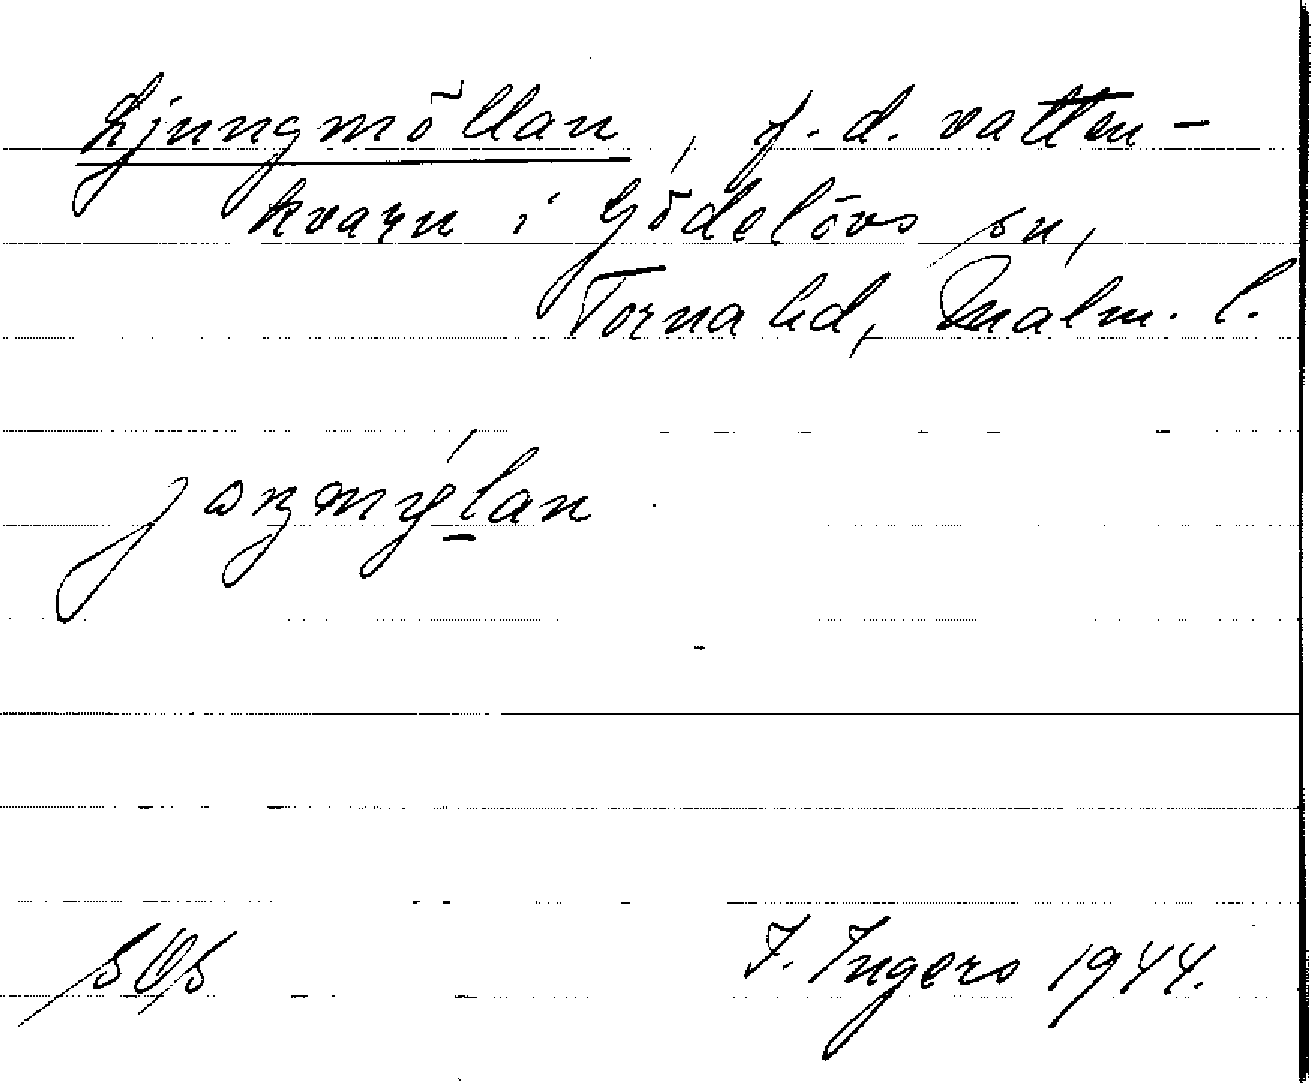 Ljungmöllan, f.d. vatten-
kvarn i Gödelövs sn,
Torna hd, Malm. l.
I. Ingers 1944.